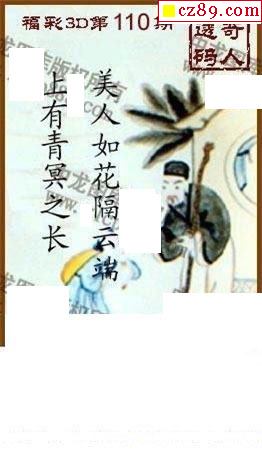 cz89.com
福彩3D第110期
奇人
透码
美人如花隔云端
上有青冥之长